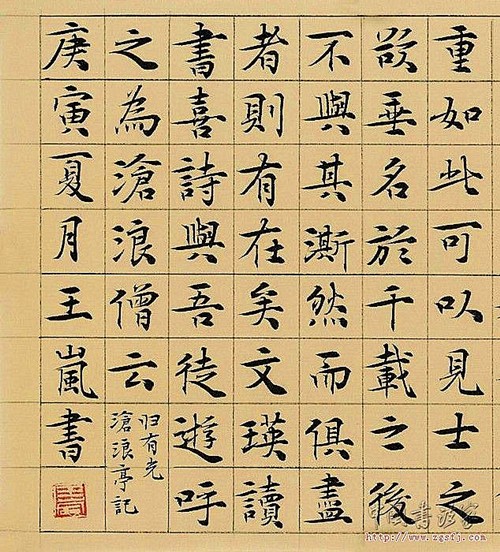 重如此可以見士之
欲垂名於千載之後
不與其澌然而俱盡
者則有在矣文瑛讀
書喜詩與吾徒遊呼
之為滄浪僧云
归有光
滄浪亭記
庚寅夏月王嵐書
http://www.zgsfj.com